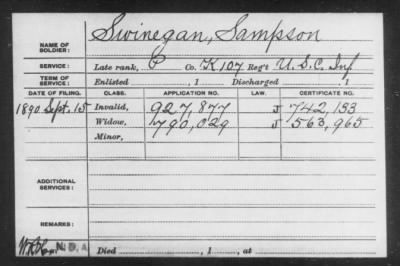 NAME OF SOLDIER: Swinegan, Sampson
SERVICE: Late rank, P Co. K 107 Reg't U.S.C. Inf
TERM OF SERVICE: Enlisted , 1 Discharged , 1
DATE OF FILING. CLASS. APPLICATION NO. LAW. CERTIFICATE NO.
1890 Sept. 15 Invalid, 927,877 J 742,153
Widow, 790,029 J 563,965
Minor,
ADDITIONAL SERVICES:
REMARKS:
Died , 1 , at